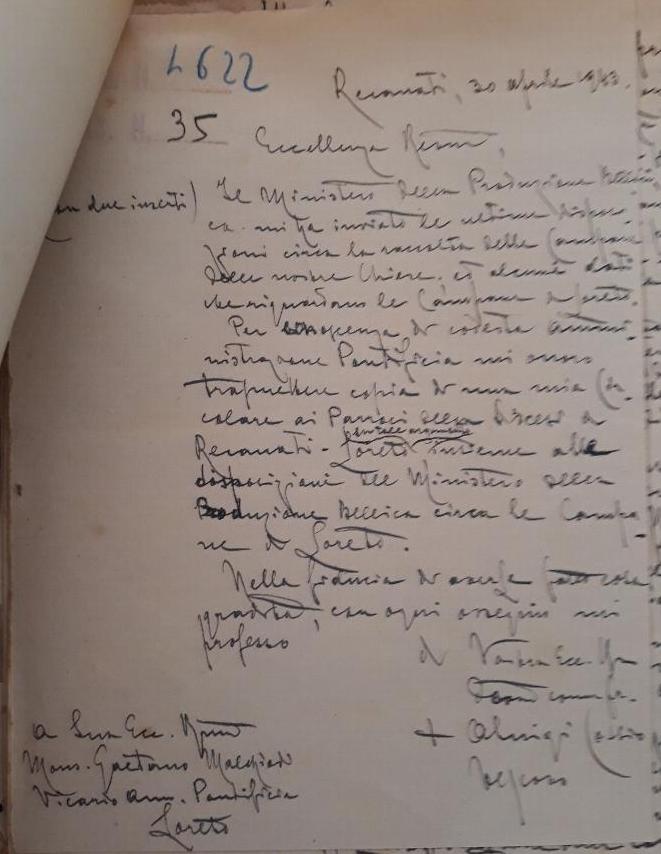 4622
35
Recanati, 30 aprile 1943.
Eccellenza Rev.ma,
(con due inserti)
Il Ministero della Produzione Belli-
ca mi ha inviato le ultime dispo-
sizioni circa la raccolta delle Campane
delle nostre Chiese, ed alcuni dati
che riguardano le Campane di Loreto.
Per conoscenza di codesta Ammi-
nistrazione Pontificia mi onoro
trasmettere copia di una mia Cir-
colare ai Parroci della Diocesi di
Recanati-Loreto insieme alle
sull'argomento
disposizioni del Ministero della
Produzione Bellica circa le Campa-
ne di Loreto.
Nella fiducia di averle fatto cosa
gradita, con ogni ossequio mi
professo
di Vostra Ecc.
+ Aluigi Cossio
Vescovo
a Sua Ecc. Rev.ma
Mons. Gaetano Malchiodi
Vicario Amm. Pontificia
Loreto